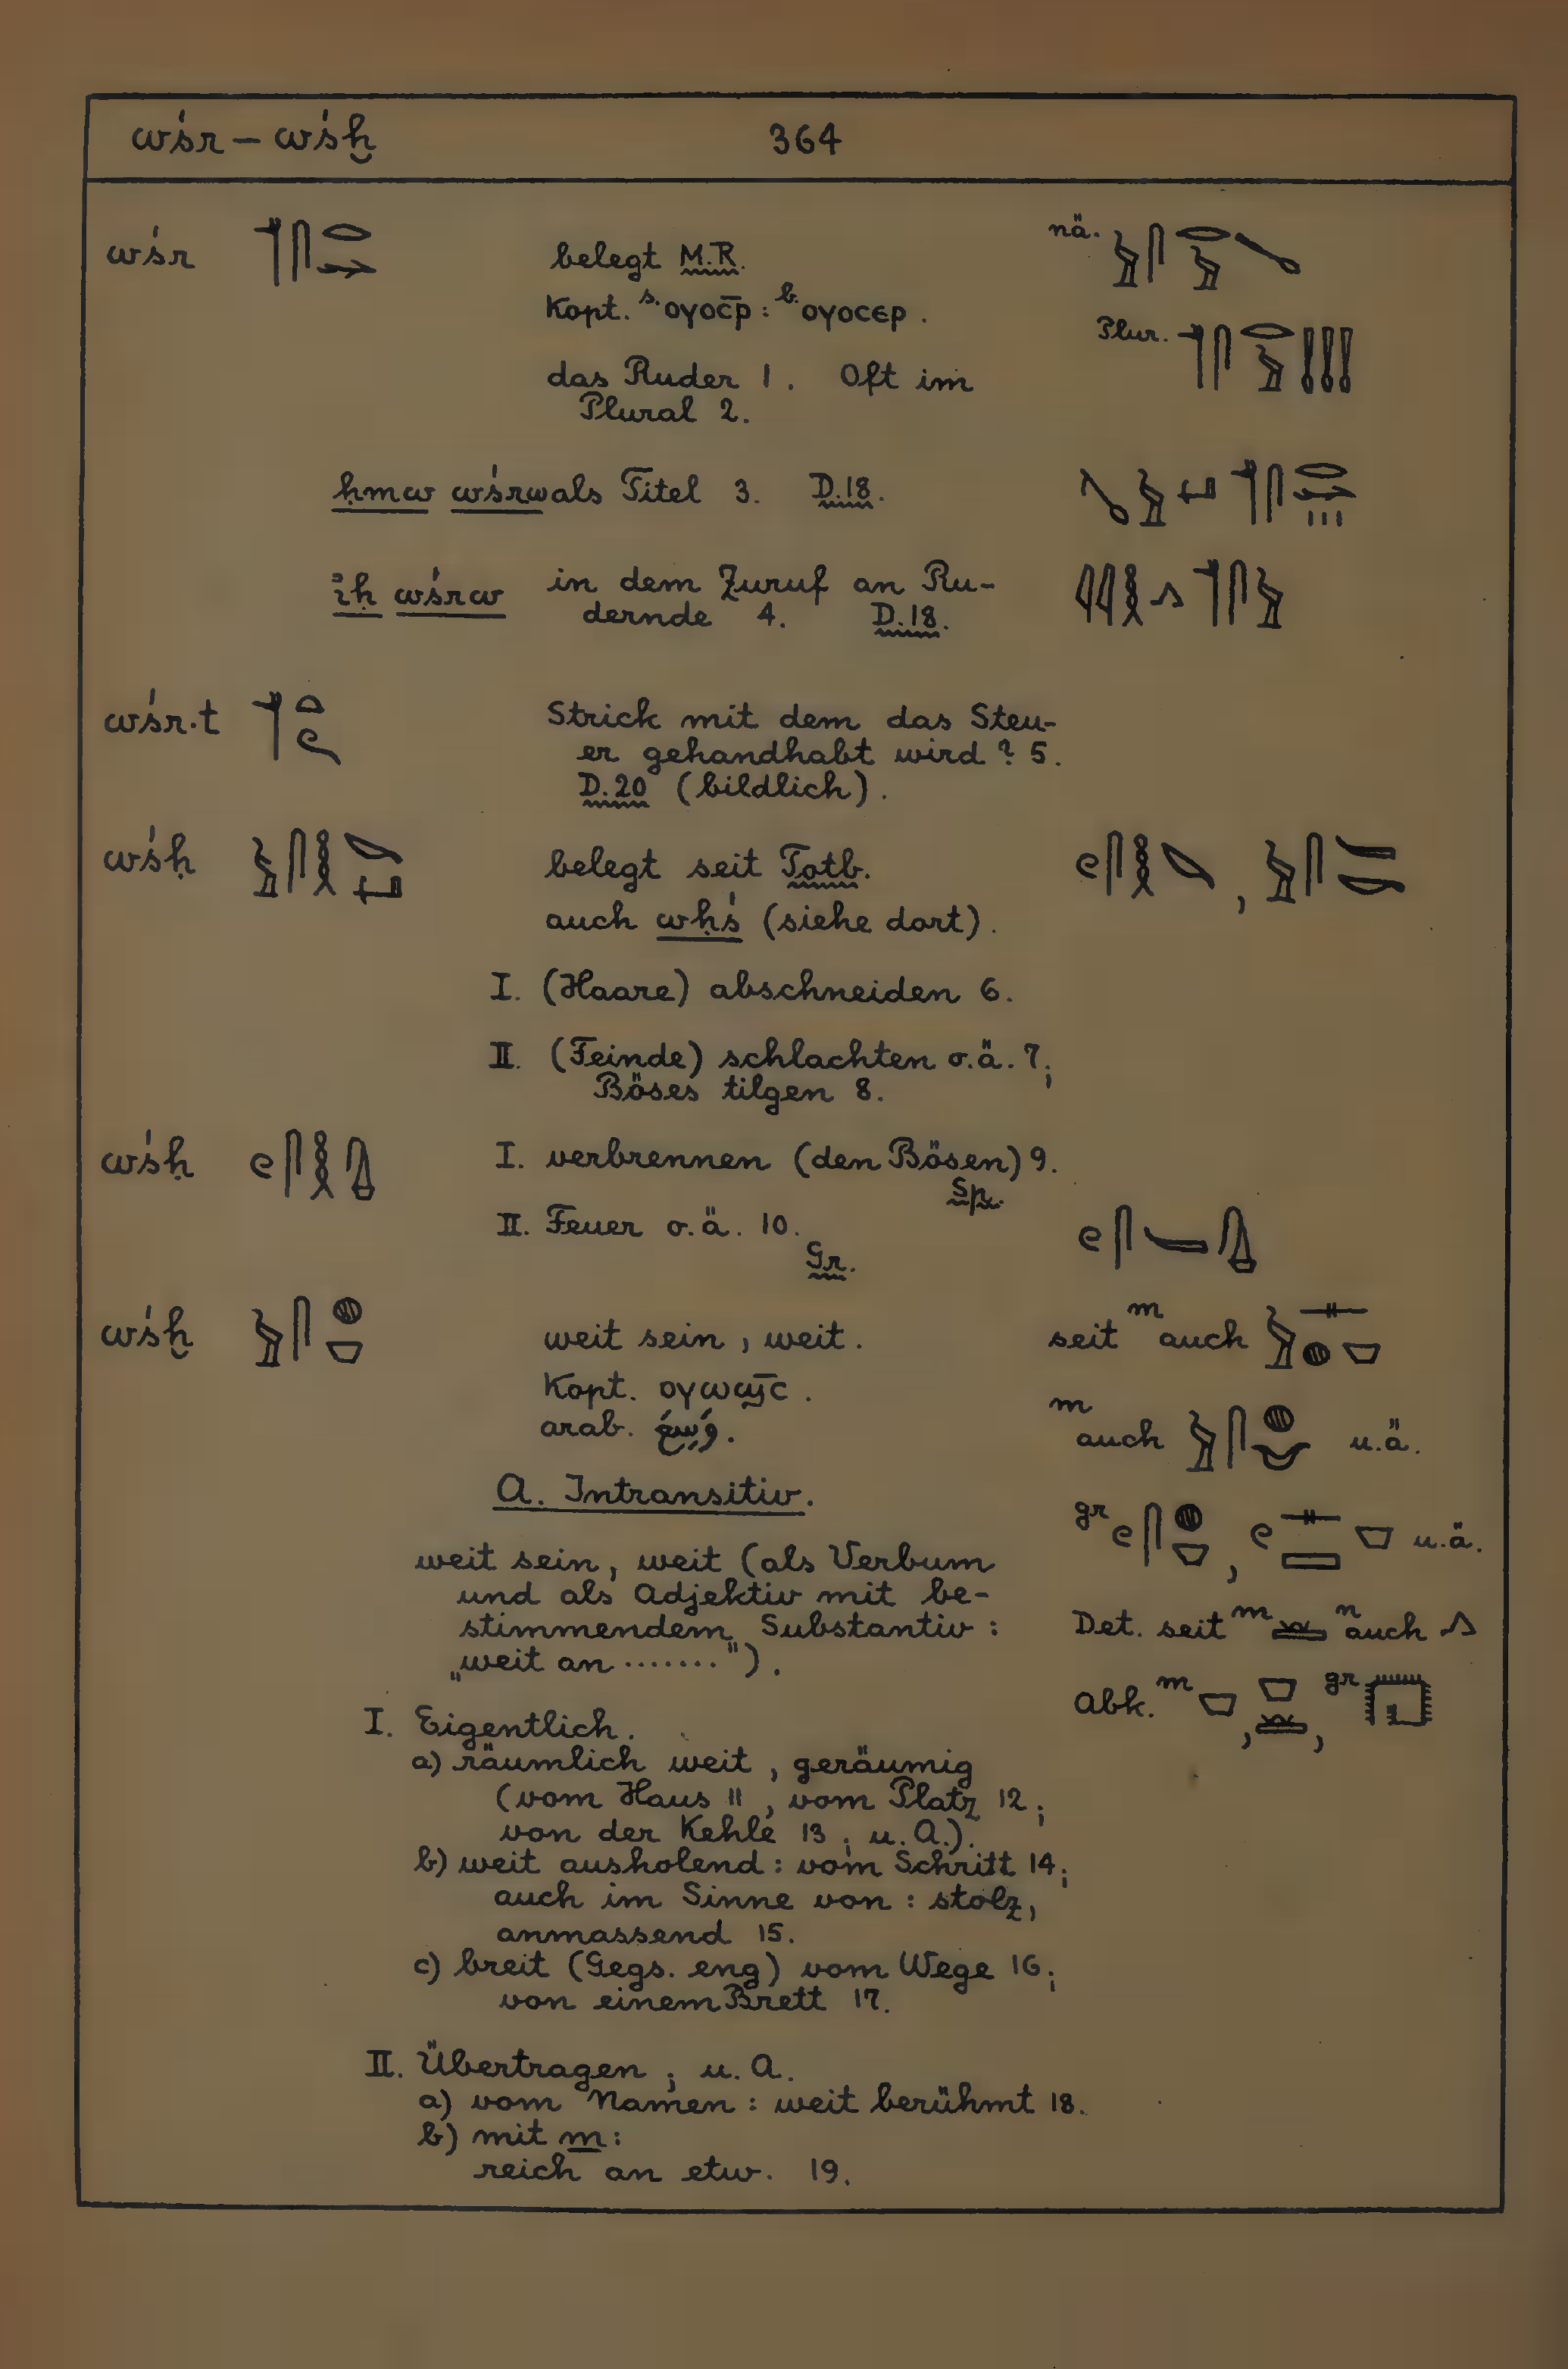 wśr – wśḫ 364
wśr belegt M.R. nä.
Kopt. s. ⲟⲩⲟⲥ̅ⲣ : b. ⲟⲩⲟⲥⲉⲣ .
Plur.
das Ruder 1. Oft im
Plural 2.
ḥmw wśrw als Titel 3. D.18.
ꞽḥ wśrw in dem Zuruf an Ru-
dernde 4. D.18.
wśr.t Strick mit dem das Steu-
er gehandhabt wird ? 5.
D.20 (bildlich).
wśḥ belegt seit Totb. ,
auch wḥś (siehe dort).
I. (Haare) abschneiden 6.
II. (Feinde) schlachten o.ä. 7;
Böses tilgen 8.
wśḥ I. verbrennen (den Bösen) 9.
Sp.
II. Feuer o.ä. 10.
Gr.
wśḫ weit sein, weit. seit m auch
Kopt. ⲟⲩⲱϣ̅ⲥ .
m auch u.ä.
arab. وَسِعَ.
A. Intransitiv.
gr , u.ä.
weit sein, weit (als Verbum
und als Adjektiv mit be-
stimmendem Substantiv :
Det. seit m n auch
„weit an ·······").
Abk. m , , gr
I. Eigentlich.
a) räumlich weit, geräumig
(vom Haus 11, vom Platz 12;
von der Kehle 13; u. A.).
b) weit ausholend : vom Schritt 14;
auch im Sinne von : stolz,
anmassend 15.
c) breit (Gegs. eng) vom Wege 16;
von einem Brett 17.
II. Übertragen; u. A.
a) vom Namen : weit berühmt 18.
b) mit m :
reich an etw. 19.